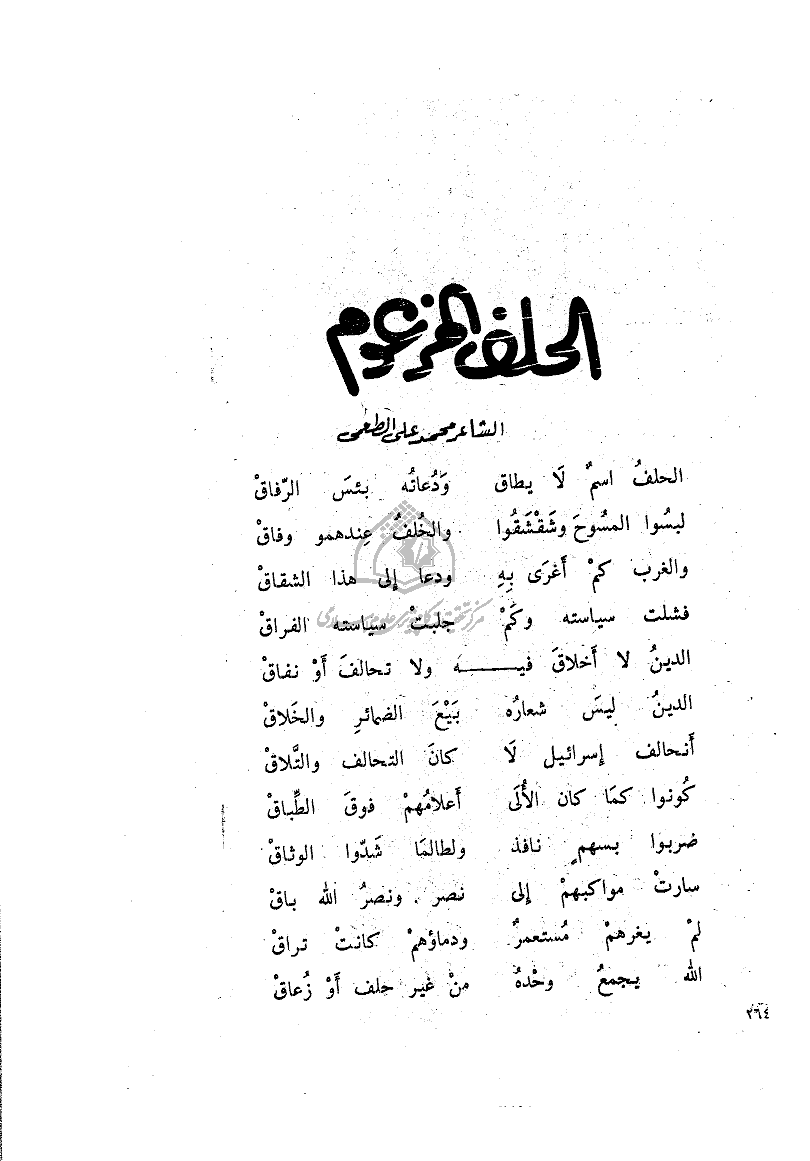 الحلف المزعوم
الشاعر محمد على الطعمى
الحلفُ اسمٌ لَا يطاق وَدُعاتُه بئسَ الرّفاقْ
لبسُوا المسُوحَ وشَقْشَقُوا والخُلفُ عِندهمو وفاقْ
والغرب كمْ أَغرَى بِهِ ودعا إلى هذا الشقاقْ
فشلت سياسته وكَمْ جلبتْ سياسته الفراقْ
الدينُ لا أَخلاقَ فيـــــــه ولا تحالفَ أَوْ نفاقْ
الدينُ ليسَ شعارُه بَيْعَ الضمائرِ والخَلاقْ
أَنحالف إسرائيل لَا كانَ التحالف والتَّلاقْ
كُونوا كمَا كان الأُلَى أَعلامُهمْ فوقَ الطِّباقْ
ضربوا بسهمٍ نافذ ولطالمَا شَدّوا الوثاقْ
سارتْ مواكبهمْ إلى نصر . ونصرُ الله باقْ
لمْ يغرهمْ مُستعمرٌ ودماؤهمْ كانتْ تراقْ
الله يجمعُ وحْدهُ منْ غير حلف أَوْ زُعاقْ
٣٦٤